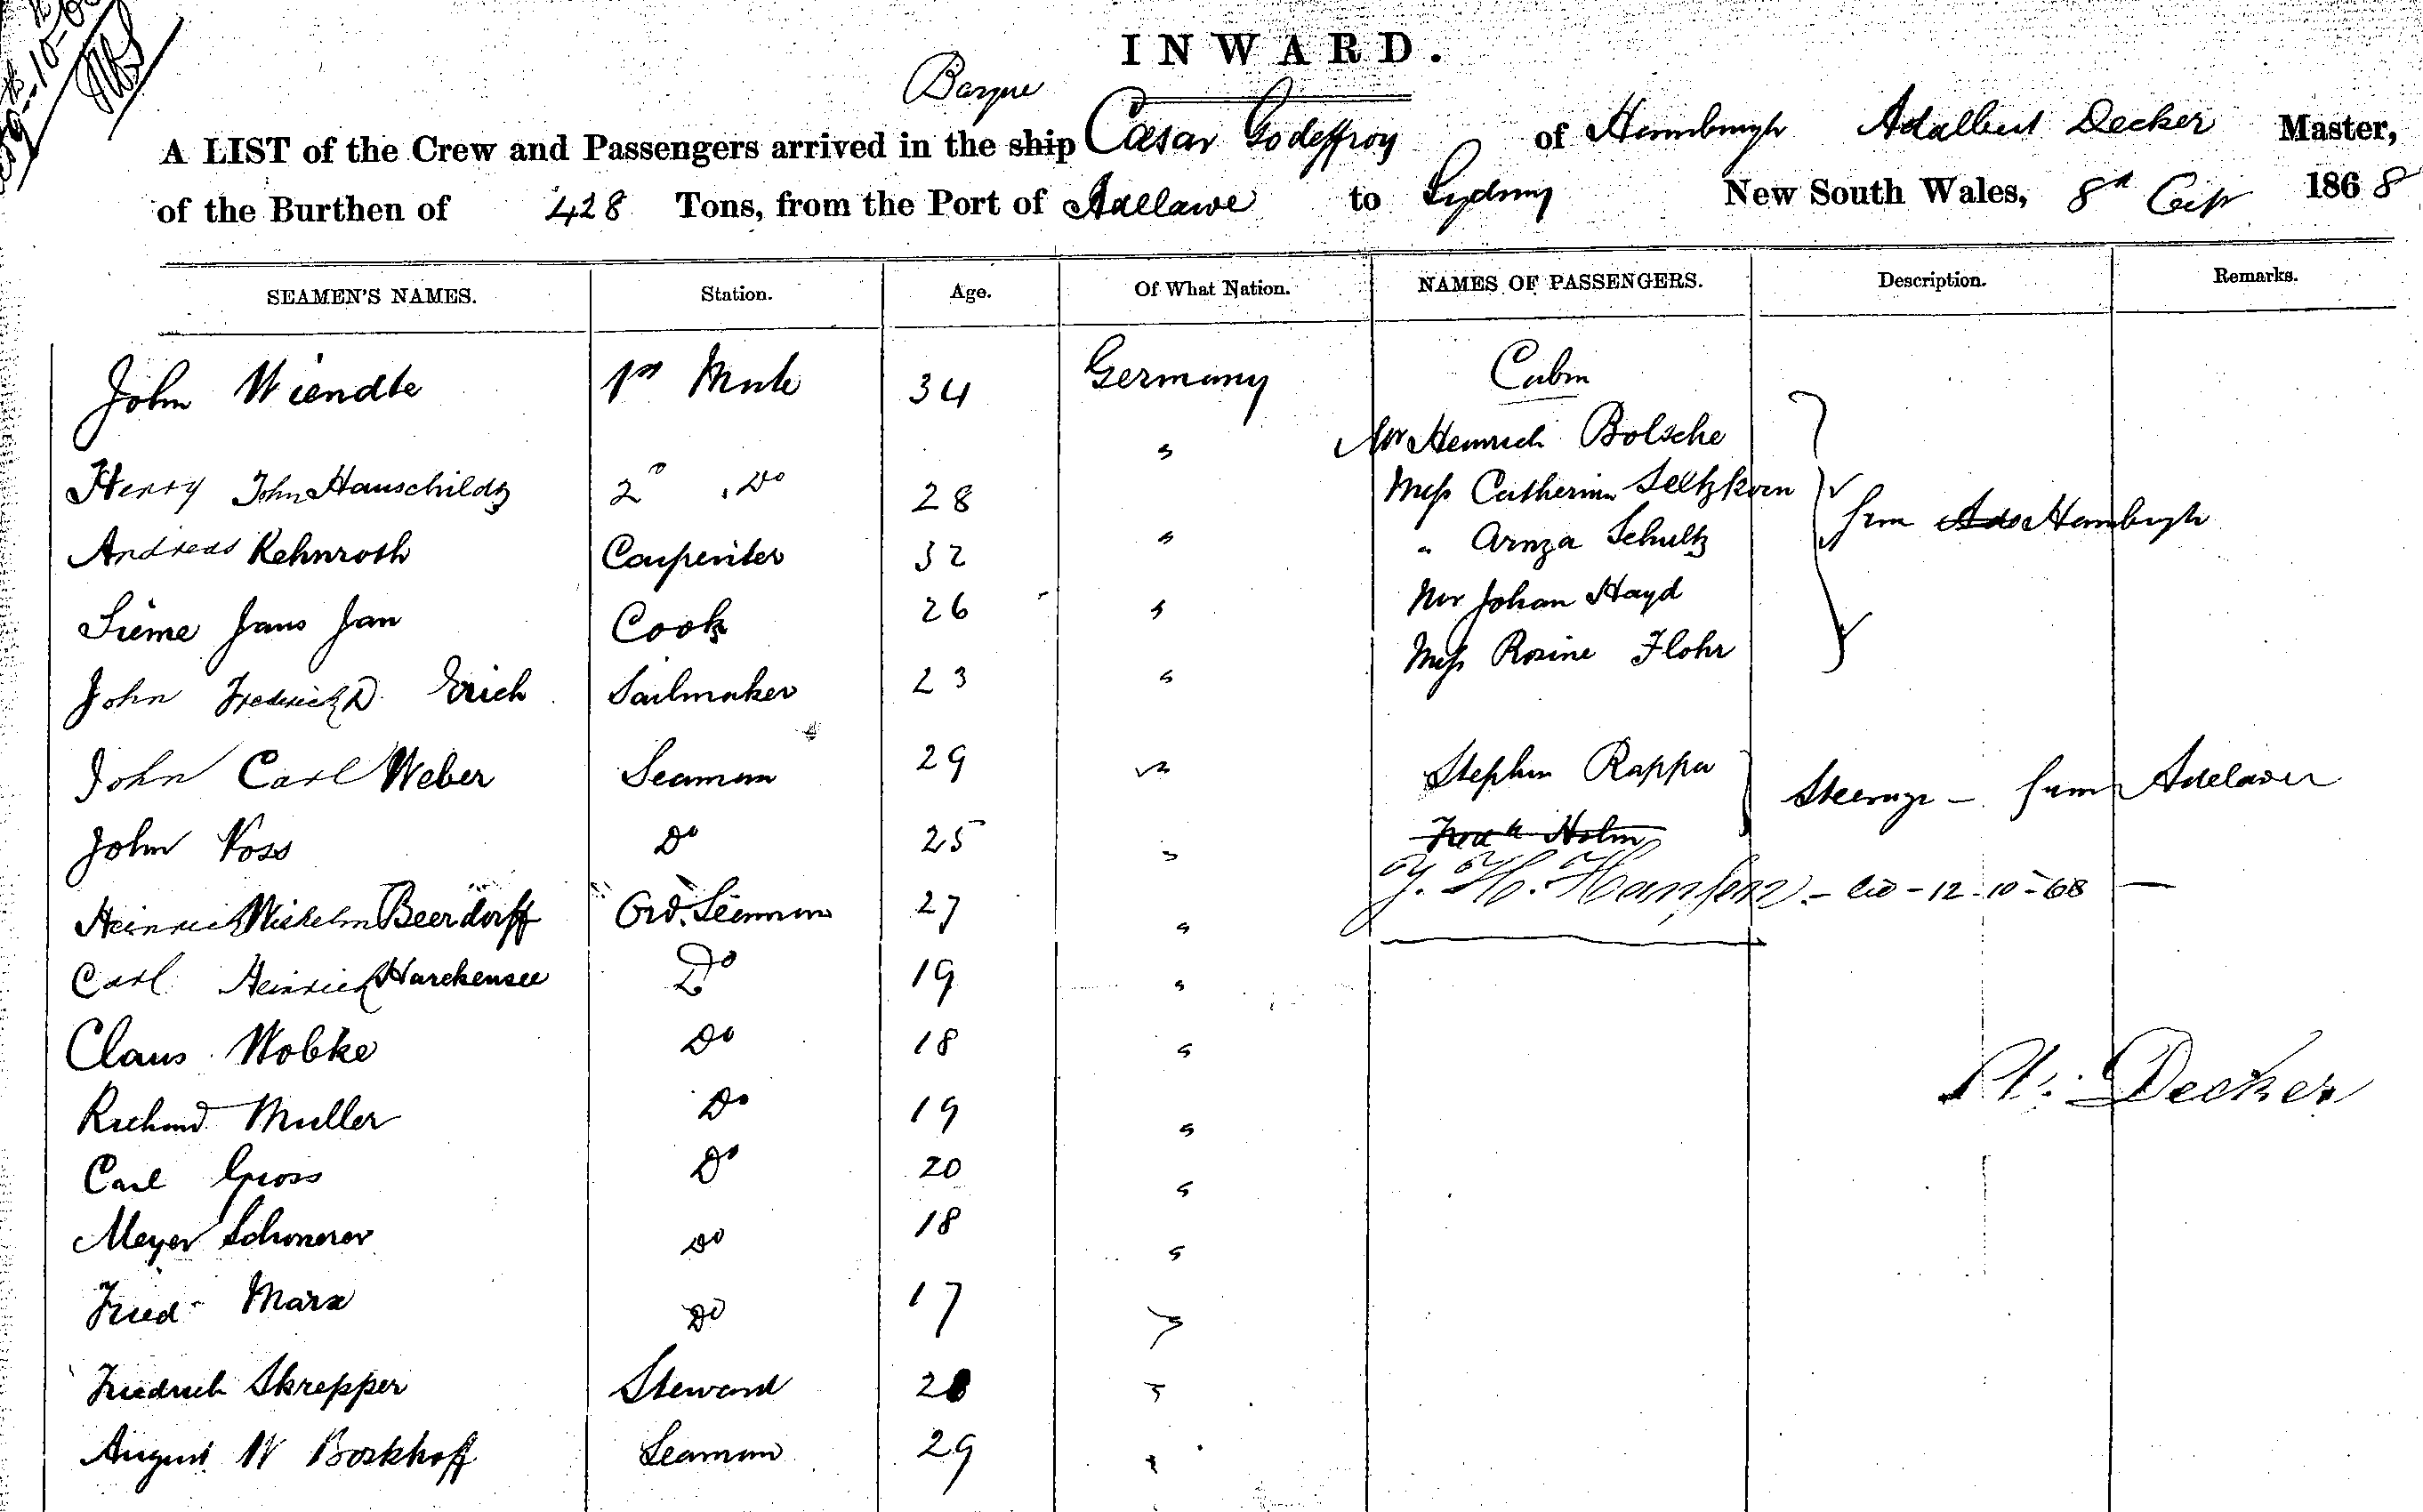 INWARD.
Barque
A LIST of the Crew and Passengers arrived in the ship Cæsar Godeffroy of Hamburgh Adalbert Decker Master,
of the Burthen of 428 Tons, from the Port of Adelaide to Sydney New South Wales, 8th 1868
SEAMEN'S NAMES. Station. Age. Of What Nation. NAMES OF PASSENGERS. Description. Remarks.
John Wiendte 1st Mate 34 Germany Cabin
Mr Heinrich Bolsche
Henry John Hauschildt 2d Do 28 " Miss Catherina Seltzkorn
Andreas Rehnroth Carpenter 32 " " Schultz from Hamburgh
Sieme Jans Jan Cook 26 " Mr Johan Hayd
Miss Rosine Flohr
John Frederick D. Erich Sailmaker 23 "
John Carl Weber Seaman 29 " Stephen Rappa Steerage - from Adelaide
John Voss Do 25 " Fredk Holm
Heinrich Wilhelm Beerdorff Ord. Seaman 27 " H. Hansen - 12-10-68 -
Carl Heinrich Harckensee Do 19 "
Claus Wobke Do 18 "
A. Decker
Richard Muller Do 19 "
Carl Gross Do 20 "
Meyer Schonerer Do 18 "
Fried- Marx Do 17 "
Friedrich Skrepper Steward 28 "
August W Borkhoff Seaman 29 "